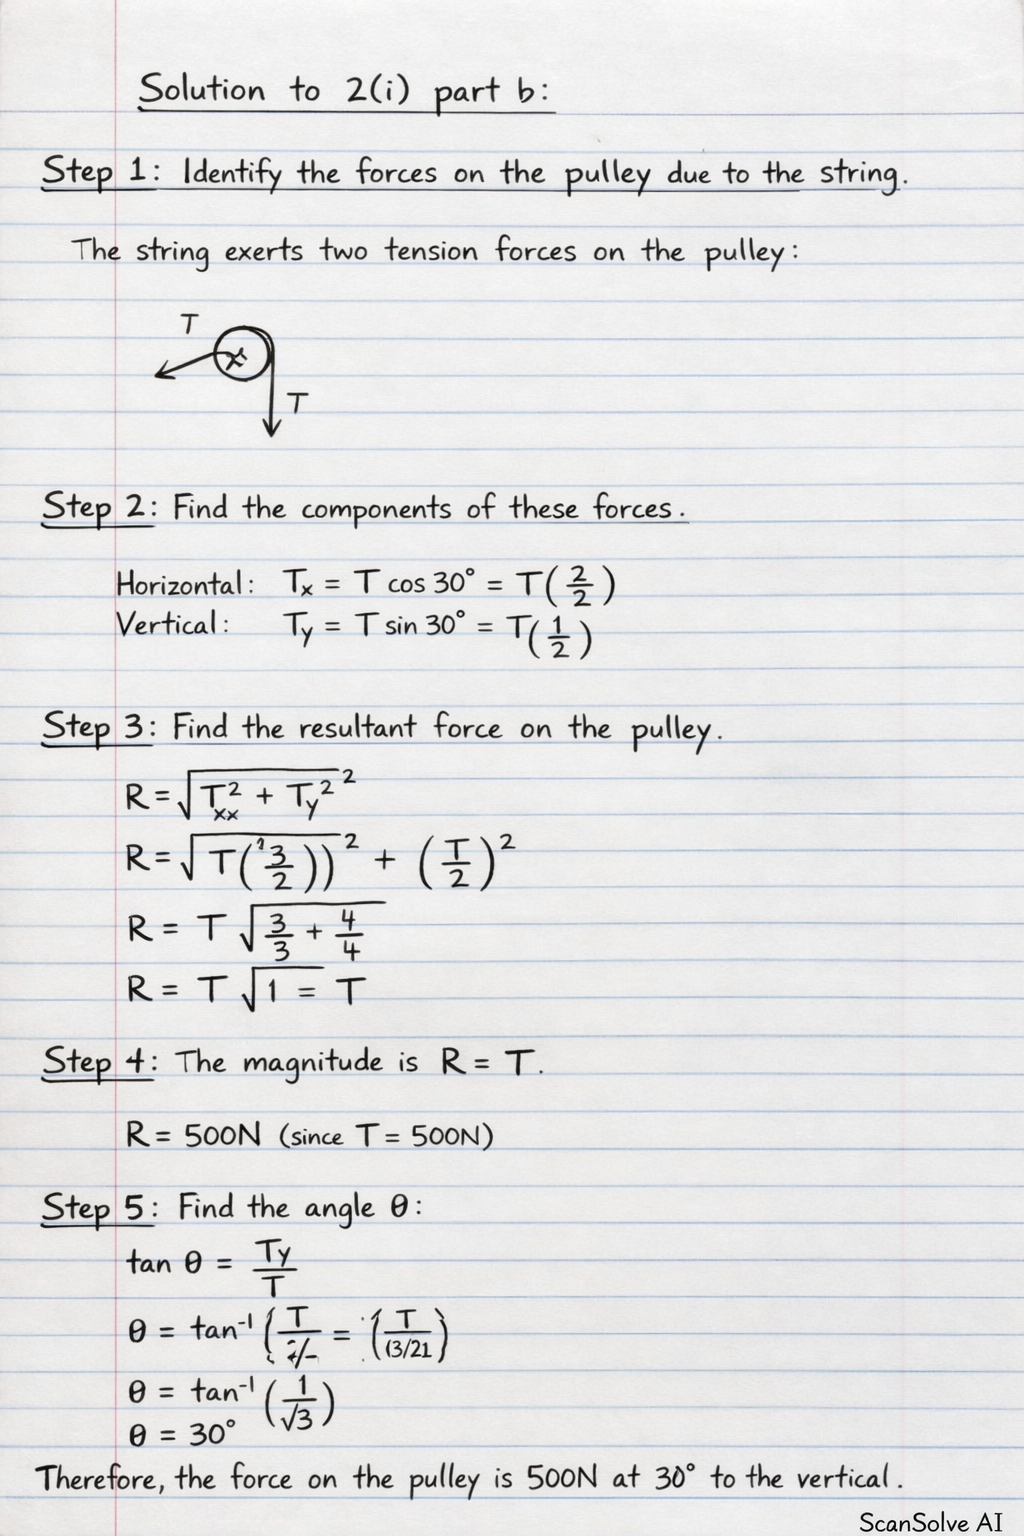 Solution to 2(i) part b:
Step 1: Identify the forces on the pulley due to the string.
The string exerts two tension forces on the pulley:
T
x
T
Step 2: Find the components of these forces.
Horizontal: Tₓ = T cos 30° = T(2/2)
Vertical: Ty = T sin 30° = T(1/2)
Step 3: Find the resultant force on the pulley.
R = √(Txx² + Ty²)²
R = √(T(3/2)))² + (T/2)²
R = T √(3/3 + 4/4)
R = T √1 = T
Step 4: The magnitude is R = T.
R = 500N (since T = 500N)
Step 5: Find the angle θ:
tan θ = Ty/T
θ = tan⁻¹ (T/ = (T/(3/21)
θ = tan⁻¹ (1/√3)
θ = 30°
Therefore, the force on the pulley is 500N at 30° to the vertical.
ScanSolve AI